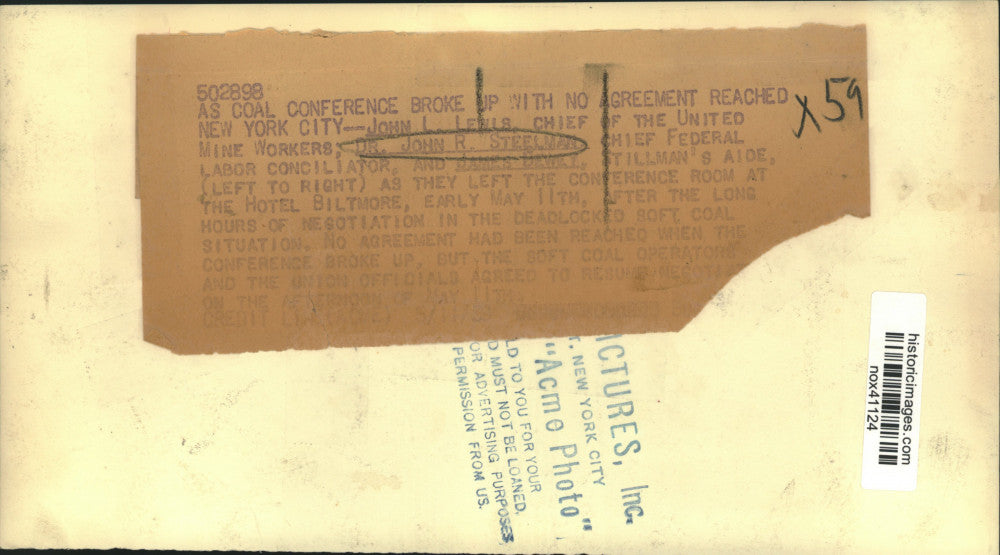 502898
AS COAL CONFERENCE BROKE UP WITH NO AGREEMENT REACHED
NEW YORK CITY--JOHN L. LEWIS, CHIEF OF THE UNITED
MINE WORKERS, DR. JOHN R. STEELMAN, CHIEF FEDERAL
LABOR CONCILIATOR, AND JAMES DEWEY, STILLMAN'S AIDE,
(LEFT TO RIGHT) AS THEY LEFT THE CONFERENCE ROOM AT
THE HOTEL BILTMORE, EARLY MAY 11TH, AFTER THE LONG
HOURS OF NEGOTIATION IN THE DEADLOCKED SOFT COAL
SITUATION. NO AGREEMENT HAD BEEN REACHED WHEN THE
CONFERENCE BROKE UP, BUT THE SOFT COAL OPERATORS
AND THE UNION OFFICIALS AGREED TO RESUME NEGOTI
ON THE AFTERNOON OF MAY 11TH.
CREDIT LINE
X59
ICTURES, Inc.
T. NEW YORK CITY
"Acme Photo"
LD TO YOU FOR YOUR
D MUST NOT BE LOANED,
OR ADVERTISING PURPOSES
PERMISSION FROM US.
historicimages.com
nox41124